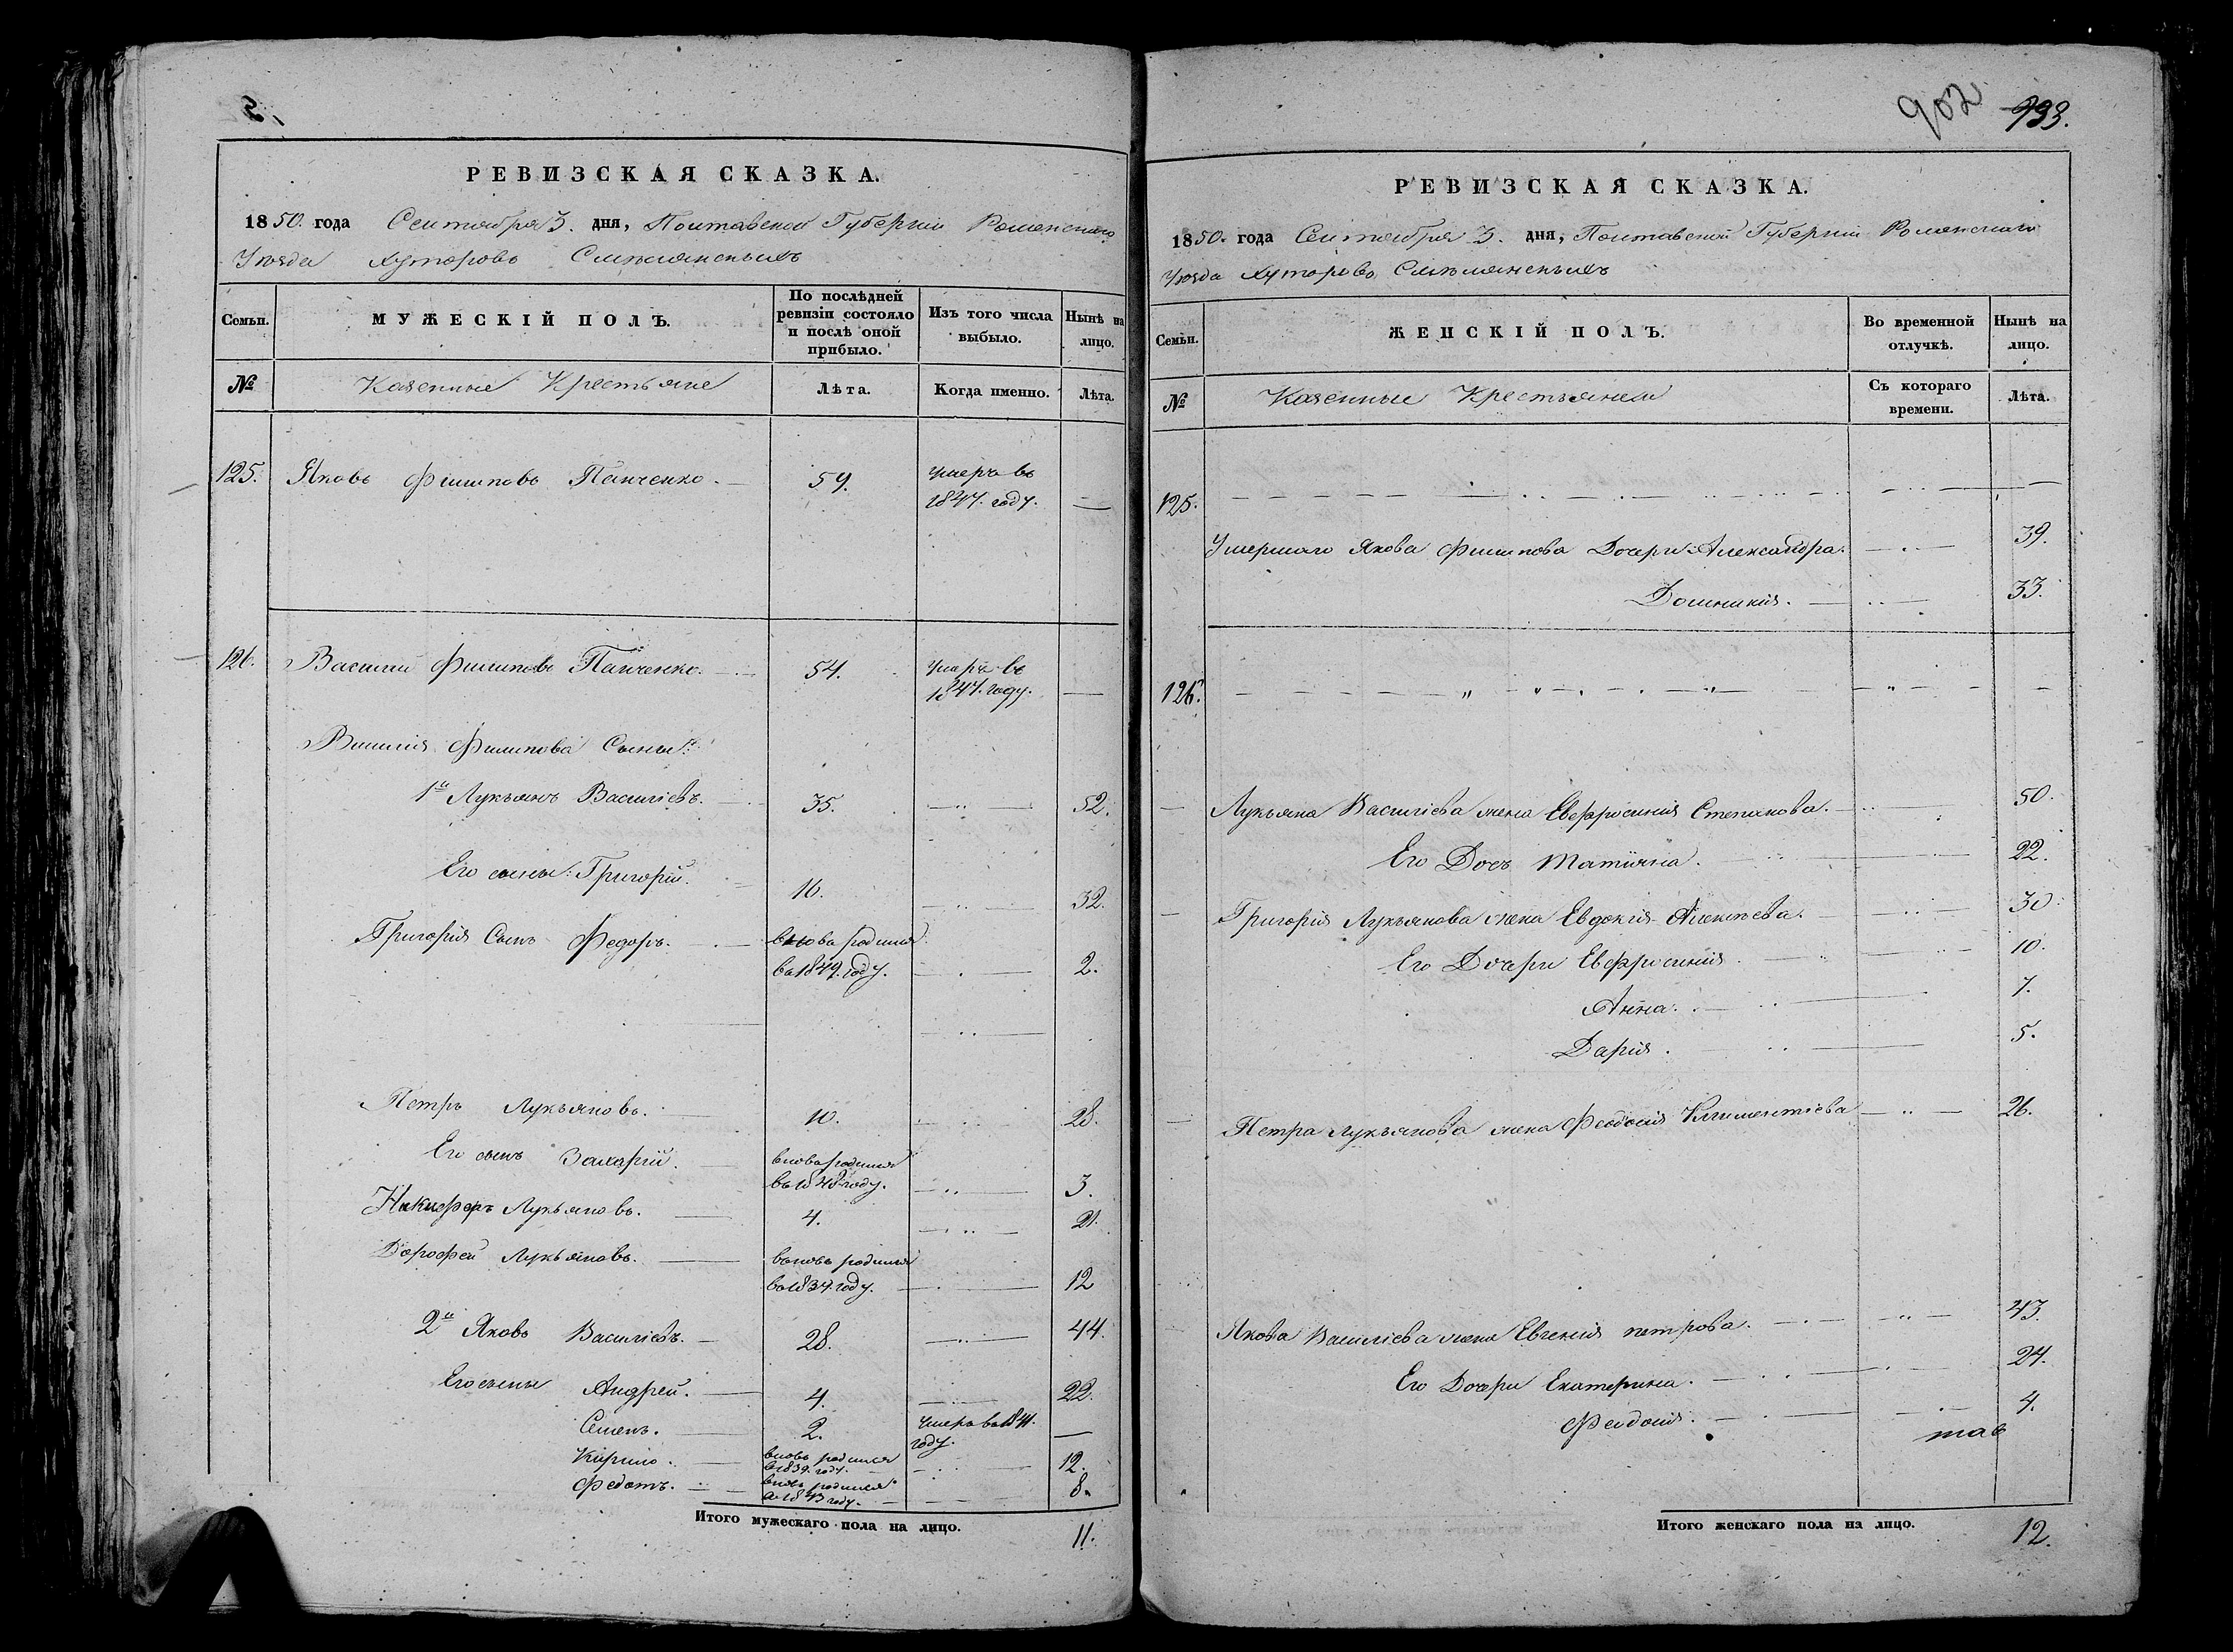 РЕВИЗСКАЯ СКАЗКА.
1850. года Сентября 3. дня, Полтавской Губернии Роменского
Уѣзда Хуторовъ
Семьи.
МУЖЕСКІЙ ПОЛЪ.
По послѣдней ревизіи состояло и послѣ оной прибыло.
Изъ того числа выбыло.
Нынѣ на лицо.
№
Казенные Крестьяне
Лѣта.
Когда именно.
Лѣта.
125. Яковъ Филиповъ Панченко. 59. умеръ въ
1847. году. —
126. Василий Филиповъ Панченко. 54. умеръ въ
1847. году. —
Василия Филипова Сыны:
1й Лукьянъ Василіевъ. 35. 52.
Его сыны: Григорій. 16. 32.
Григорія Сынъ Федоръ. вновь родился
въ 1849. году. 2.
Петръ Лукьяновъ. 10. 28.
Его сынъ Захарій. вновь родился
въ 1848 году. 3.
Никифоръ Лукьяновъ. 4. 21.
Дорофей Лукьяновъ. вновь родился
въ 1839. году. 12
2й Яковъ Василіевъ. 28. 44.
Его сыны Андрей. 4. 22.
Семенъ. 2. умеръ въ 1841.
году. —
Кирило. вновь родился
въ 1839. году. 12.
Федотъ. вновь родился
въ 1843 году. 8.
Итого мужескаго пола на лицо. 11.
902 993.
РЕВИЗСКАЯ СКАЗКА.
1850. года Сентября 3. дня, Полтавской Губерніи Роменского
Уѣзда Хуторовъ
Семьи.
ЖЕНСКІЙ ПОЛЪ.
Во временной отлучкѣ.
Нынѣ на лицо.
№
Казенные Крестьянки
Съ котораго времени.
Лѣта.
125.
Умершаго Якова Филипова Дочери: Александра. 39.
Домникия. 33.
126.
Лукьяна Василіева жена Евфросинія Степанова. 50.
Его Дочь Матіяна. 22.
Григорія Лукьянова жена Евдокія Алексѣева. 30.
Его Дочери Евфросинія. 10.
Анна. 7.
Дарія. 5.
Петра Лукьянова жена Феодосія Климентіева 26.
Якова Василіева жена Евгенія петрова. 43.
Его Дочери Екатерина. 24.
Феодосія. 4.
Итого женскаго пола на лицо. 12.